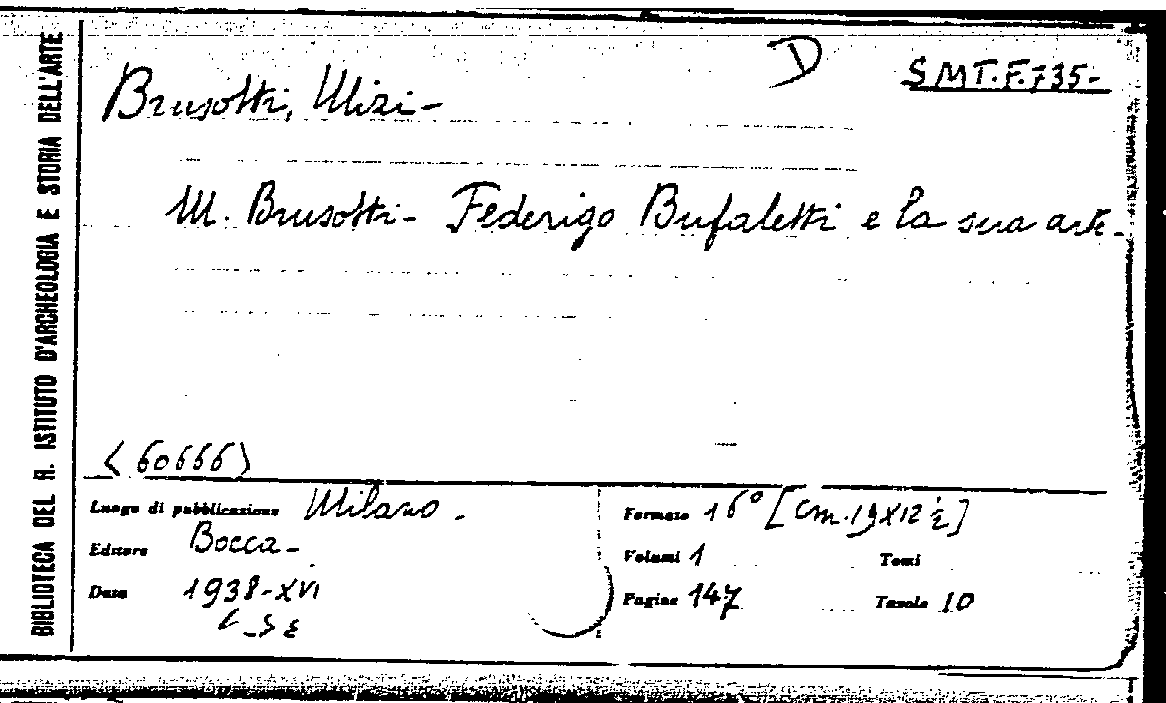 BIBLIOTECA DEL R. ISTITUTO D'ARCHEOLOGIA E STORIA DELL'ARTE
D
SMT.F.735-
Brusotti, Mizi-
M. Brusotti- Federigo Bufaletti e la sua arte-
<60666>
Luogo di pubblicazione Milano.
Editore Bocca-
Data 1938-XVI
Formato 16° [cm.19X12½]
Volumi 1 Tomi
Pagine 147 Tavole 10